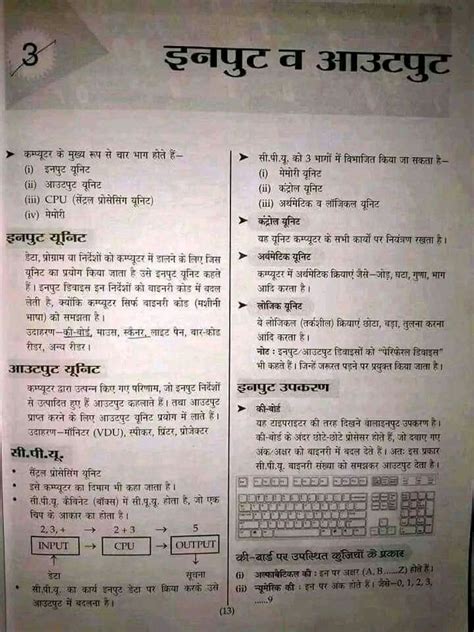 3
इनपुट व आउटपुट
➤ कम्प्यूटर के मुख्य रूप से चार भाग होते हैं–
(i) इनपुट यूनिट
(ii) आउटपुट यूनिट
(iii) CPU (सेंट्रल प्रोसेसिंग यूनिट)
(iv) मेमोरी
इनपुट यूनिट
डेटा, प्रोग्राम या निर्देशों को कम्प्यूटर में डालने के लिए जिस
यूनिट का प्रयोग किया जाता है उसे इनपुट यूनिट कहते
हैं। इनपुट डिवाइस इन निर्देशों को बाइनरी कोड में बदल
लेती है, क्योंकि कम्प्यूटर सिर्फ बाइनरी कोड (मशीनी
भाषा) को समझता है।
उदाहरण–की-बोर्ड, माउस, स्कैनर, लाइट पैन, बार-कोड
रीडर, अन्य रीडर।
आउटपुट यूनिट
कम्प्यूटर द्वारा उत्पन्न किए गए परिणाम, जो इनपुट निर्देशों
से उत्पादित हुए हैं आउटपुट कहलाते हैं। तथा आउटपुट
प्राप्त करने के लिए आउटपुट यूनिट प्रयोग में लाते हैं।
उदाहरण–मॉनिटर (VDU), स्पीकर, प्रिंटर, प्रोजेक्टर
सी.पी.यू.
• सेंट्रल प्रोसेसिंग यूनिट
• इसे कम्प्यूटर का दिमाग भी कहा जाता है।
• सी.पी.यू. कैबिनेट (बॉक्स) में सी.पू.यू. होता है, जो एक
चिप के आकार का होता है।
2, 3, + → 2 + 3 → 5
INPUT CPU OUTPUT
डेटा सूचना
• सी.पी.यू. का कार्य इनपुट डेटा पर क्रिया करके उसे
आउटपुट में बदलना है।
➤ सी.पी.यू. को 3 भागों में विभाजित किया जा सकता है–
(i) मेमोरी यूनिट
(ii) कंट्रोल यूनिट
(iii) अर्थमेटिक व लॉजिकल यूनिट
➤ कंट्रोल यूनिट
यह यूनिट कम्प्यूटर के सभी कार्यों पर नियंत्रण रखता है।
➤ अर्थमेटिक यूनिट
कम्प्यूटर में अर्थमेटिक क्रियाएं जैसे–जोड़, घटा, गुणा, भाग
आदि करता है।
➤ लोजिक यूनिट
ये लोजिकल (तर्कशील) क्रियाएं छोटा, बड़ा, तुलना करना
आदि करता है।
नोट : इनपुट/आउटपुट डिवाइसों को "पेरिफेरल डिवाइस"
भी कहते हैं। जिन्हें जरूरत पड़ने पर प्रयुक्त किया जाता है।
इनपुट उपकरण
➤ की-बोर्ड
यह टाइपराइटर की तरह दिखने वाला इनपुट उपकरण है।
की-बोर्ड के अंदर छोटे-छोटे प्रोसेसर होते हैं, जो दबाए गए
अंक/अक्षर को बाइनरी में बदल देते हैं। अतः इस प्रकार
सी.पी.यू. बाइनरी संख्या को समझकर आउटपुट देता है।
की-बार्ड पर उपस्थित कुंजियों के प्रकार
(i) अल्फाबेटिकल की : इन पर अक्षर (A, B......Z) होते हैं।
(ii) न्यूमेरिक की : इन पर अंक होते हैं। जैसे–0, 1, 2, 3,
......9
(13)